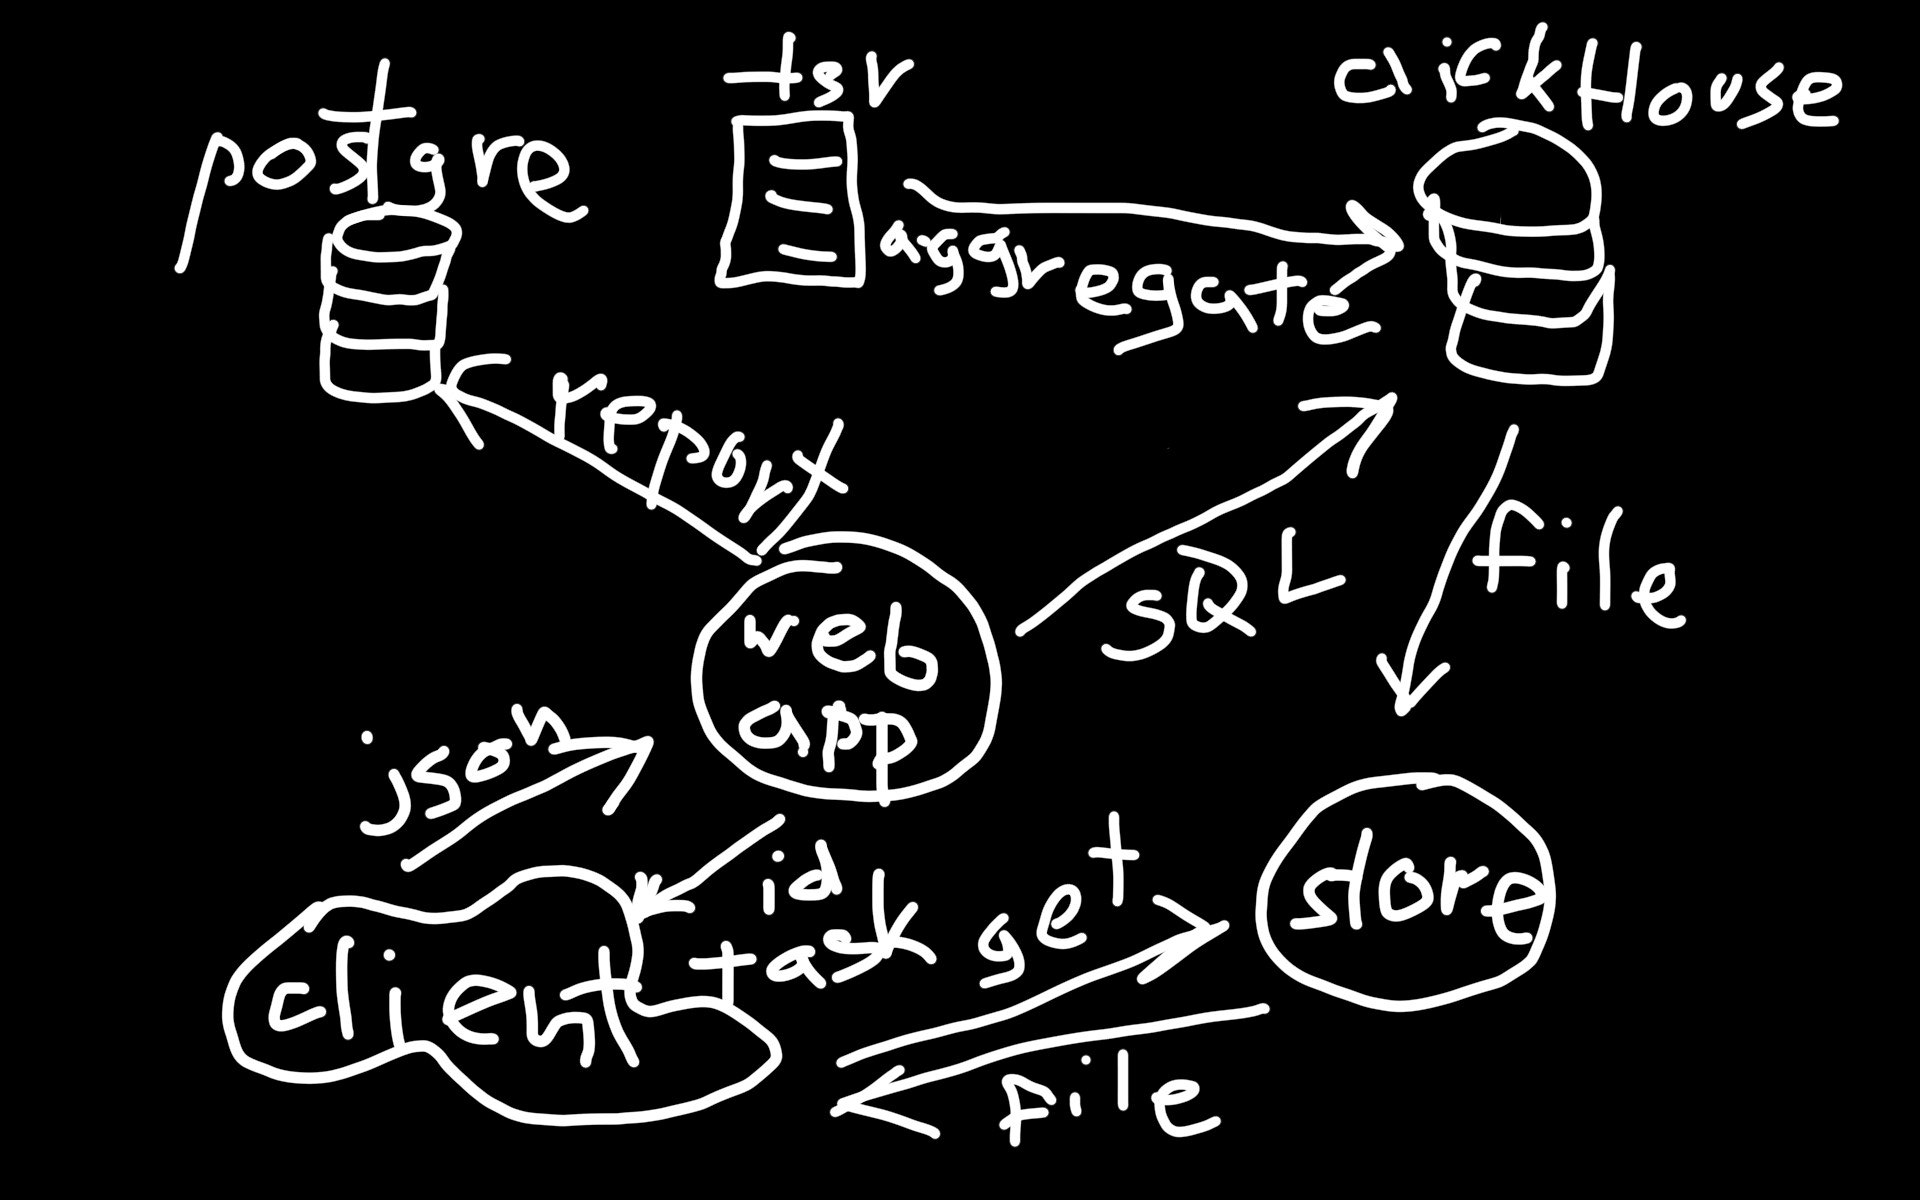 postgre
tsv
clickHouse
aggregate
report
SQL
file
web
app
json
id
task
get
store
client
file